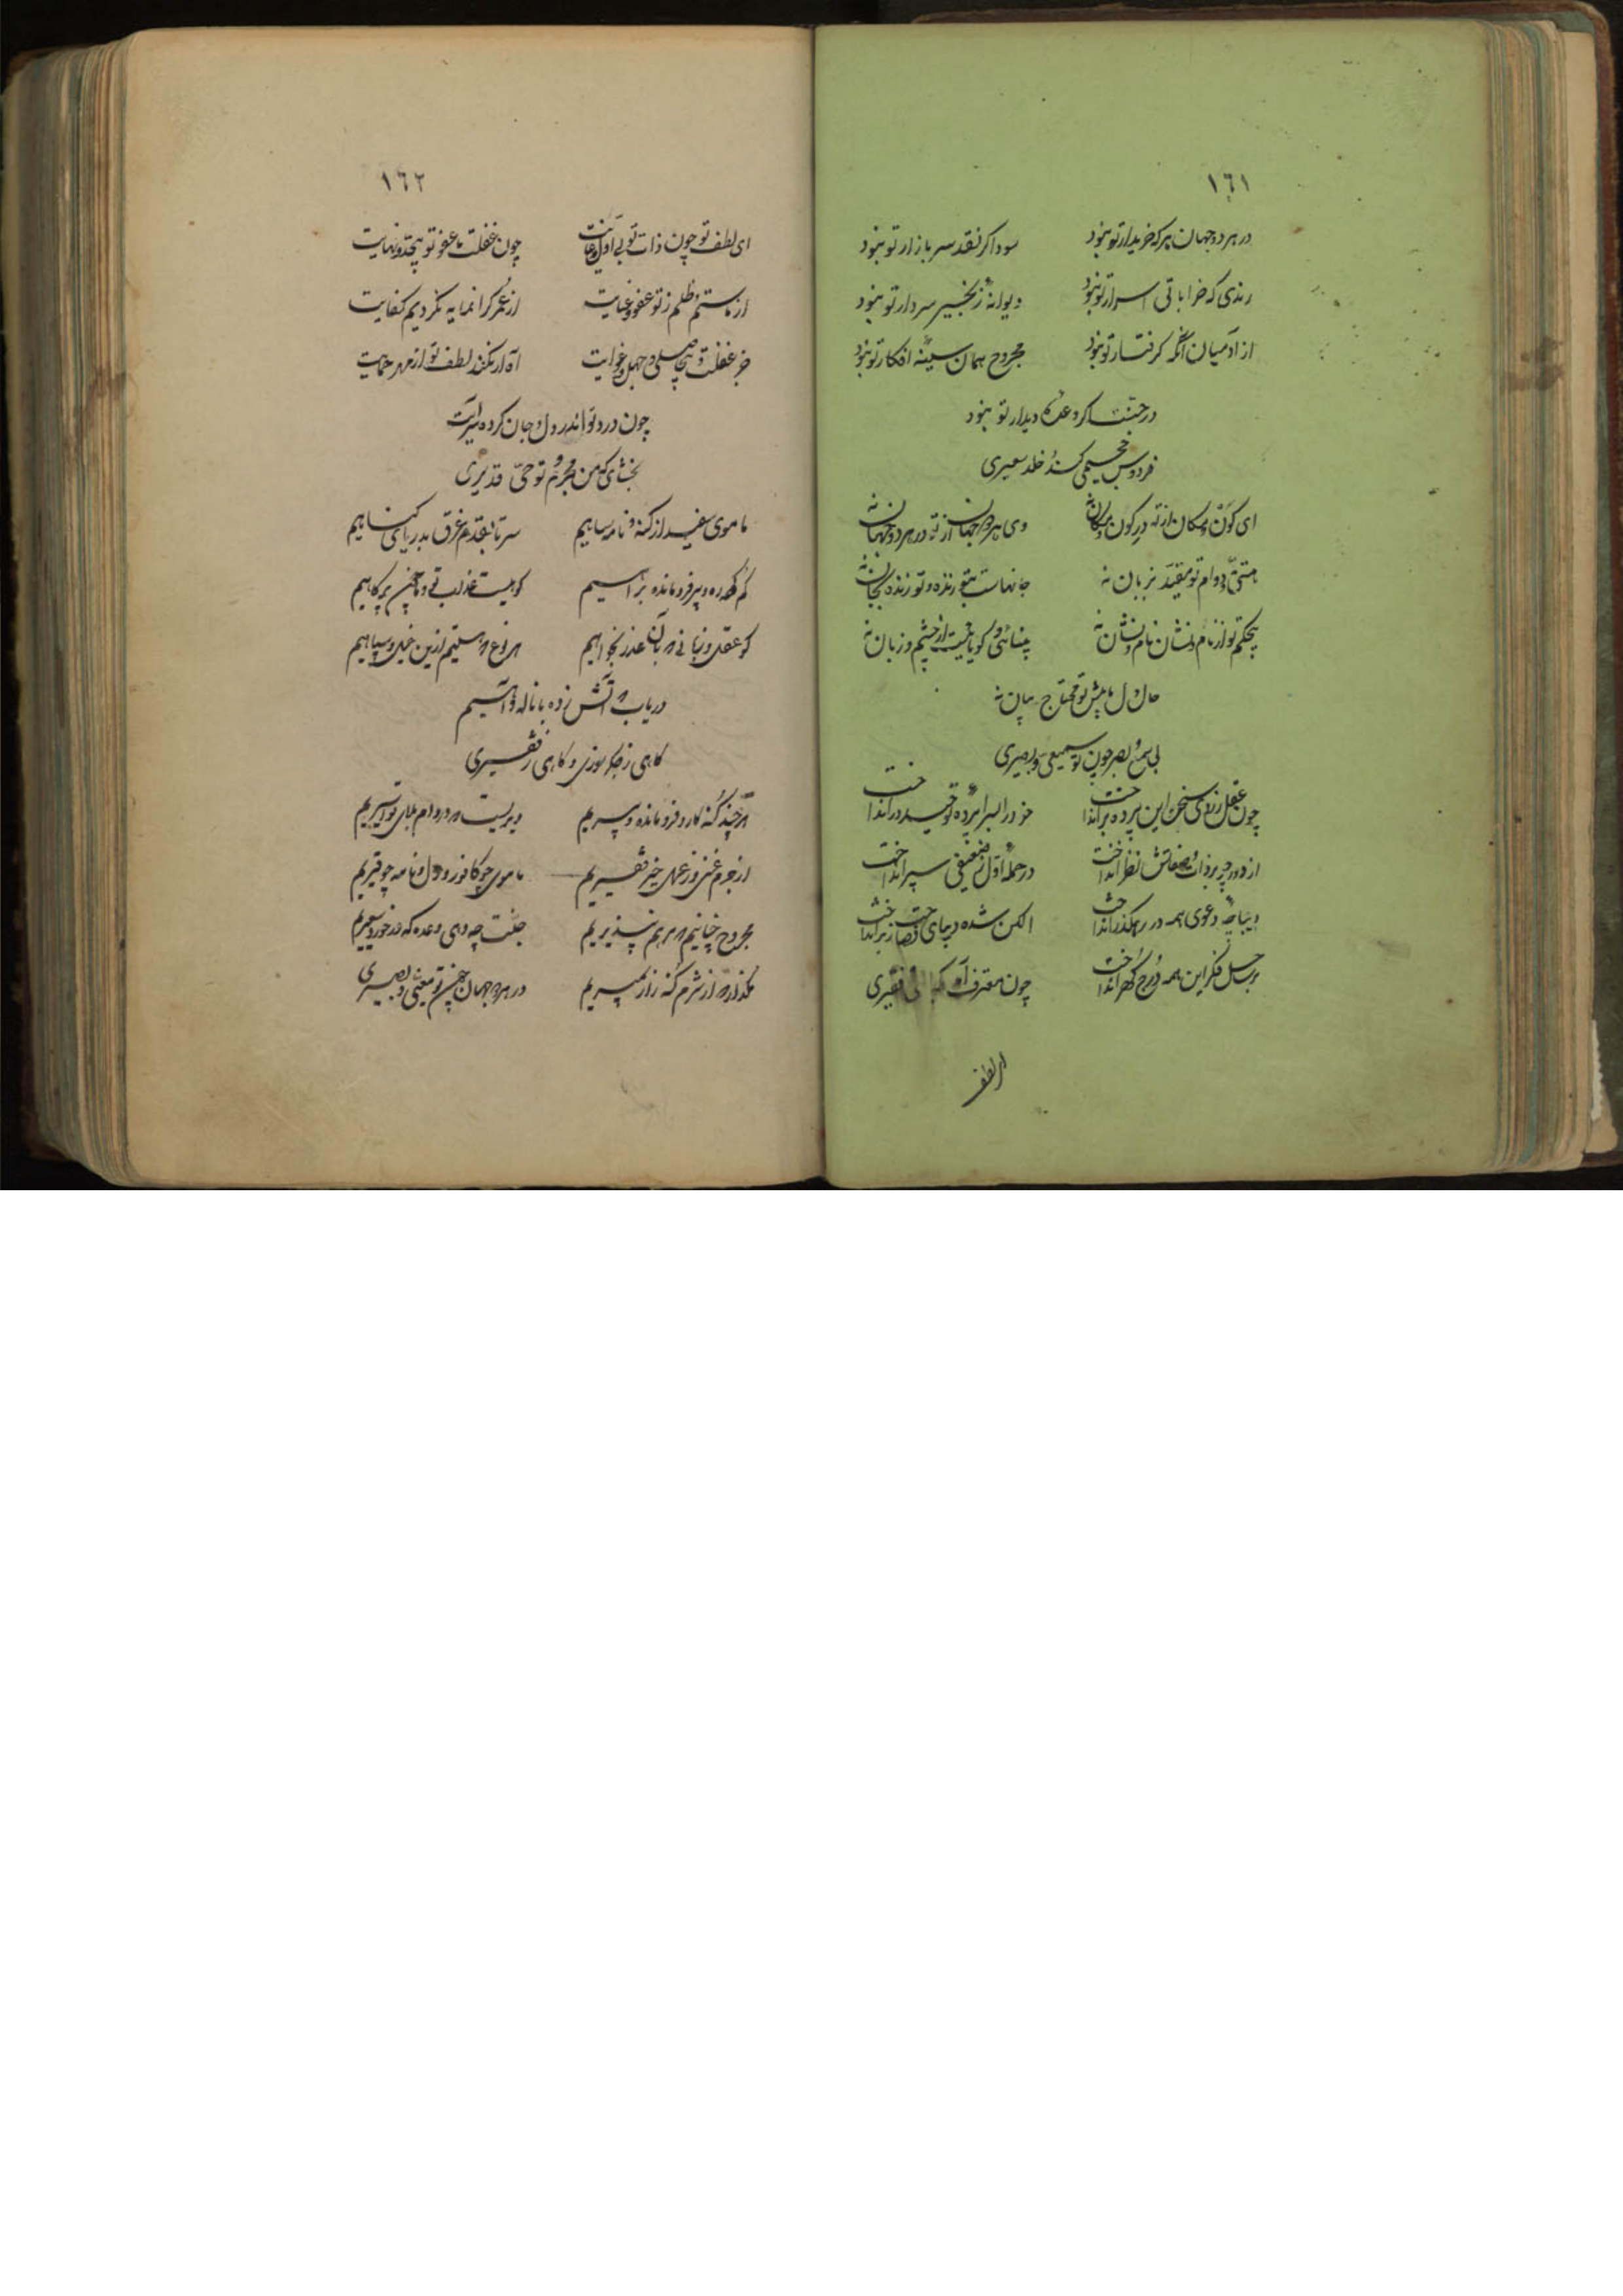 ١٦١
در هر دو جهان هر که خریدار تو نبود سوداگر نقد سر بازار تو نبود
رندی که خراباتی اسرار تو نبود دیوانهٔ زنجیر سر دار تو نبود
از آدمیان آنکه گرفتار تو نبود مجروح همان سینهٔ افکار تو نبود
در جنت اگر وعدهٔ دیدار تو نبود
فردوس جحیمی کند و خلد سعیری
ای کون و مکان از تو نه در کون و مکان نه وی هر دو جهان از تو نه در هر دو جهان نه
هستی و دوام تو مقید بزمان نه جانهاست بتو زنده و تو زنده بجان نه
بینائی و گویائیت از چشم و زبان نه
حال دل ما پیش تو محتاج بیان نه
بی سمع و بصر چون تو سمیعی و بصیری
چون عقل ز روی سخن این پرده برانداخت خود را بسراپردهٔ توحید درانداخت
از دور چو بر ذات و صفاتش نظر انداخت در حملهٔ اول ز ضعیفی سپر انداخت
دیباچهٔ دعوی همه در رهگذر انداخت الکن شده در پای سر انداخت
فکر این همه درج گهر انداخت چون معترف آمد فقیری
ای لطف
١٦٢
ای لطف تو چون ذات تو بی اول و غایت چون غفلت ما عفو تو بیحد و نهایت
از ما ستم و ظلم ز تو عفو و عنایت از عمر گرانمایه نکردیم کفایت
جز غفلت و بیحاصلی و جهل و غوایت آه ار نکند لطف تو از مهر حمایت
چون درد تو اندر دل و جان کرده سرایت
بخشای که من مجرم و تو حی قدیری
ما موی سفید از گنه و نامه سیاهیم سر تا بقدم غرق بدریای گناهیم
گم کرده ره و پیر فرومانده براهیم کوهیست عذاب تو و ما چون پر کاهیم
کو عقل و زبانی که بآن عذر بخواهیم هر نوع که هستیم ازین خیل و سپاهیم
دریاب که آتش زده با ناله و آهیم
گاهی ز جگر سوزی و گاهی ز فقیری
هر چند گنه کار و فرومانده و پیریم دیریست که در دام بلای تو اسیریم
از جرم غنی وز عمل خیر فقیریم ما موی چو کافور و دل و نامه چو قیریم
مجروح چنانیم که مرهم نپذیریم جنت چه دهی وعده که در خورد سعیریم
مگذار که از شرم گنه زار بمیریم در هر دو جهان چون تو معینی و نصیری